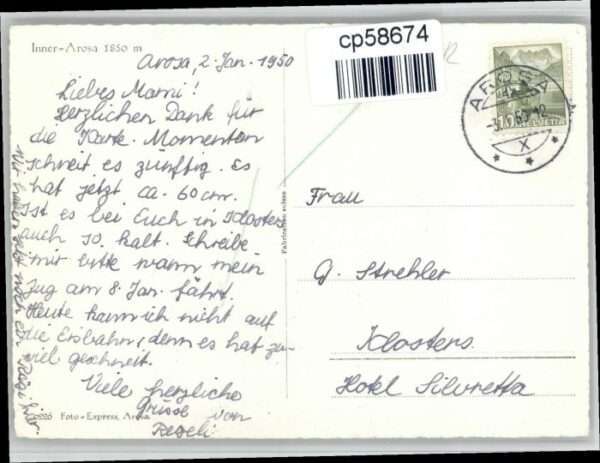 Inner-Arosa 1850 m
Arosa, 2. Jan. 1950
Liebes Mami!
Herzlichen Dank für
die Karte. Momentan
schneit es zünftig. Es
hat jetzt ca. 60 cm.
Ist es bei Euch in Klosters
auch so kalt. Schreibe
mir bitte wann mein
Zug am 8. Jan. fährt.
Heute kann ich nicht auf
die Eisbahn, denn es hat zu-
viel geschneit.
Viele herzliche
Grüsse von
Reseli
Wir haben jetzt noch ein
Foto-Express, Arosa
cp58674
AROSA
HELVETIA
X
Frau
G. Strehler
Klosters
Hotel Silvretta